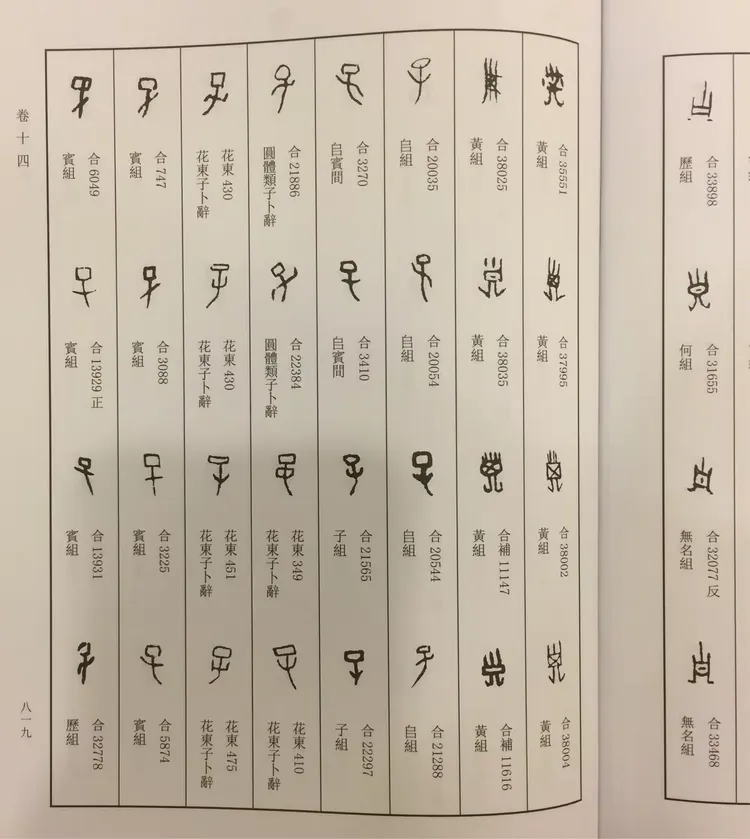 合 33898
歷組
合 31655
何組
合 32077 反
無名組
合 33468
無名組
合 35551
黃組
合 37995
黃組
合 38002
黃組
合 38004
黃組
合 38025
黃組
合 38035
黃組
合補 11147
黃組
合補 11616
黃組
合 20035
𠂤組
合 20054
𠂤組
合 20544
𠂤組
合 21288
𠂤組
合 3270
𠂤賓間
合 3410
𠂤賓間
合 21565
子組
合 22297
子組
合 21886
圓體類子卜辭
合 22384
圓體類子卜辭
花東 349
花東子卜辭
花東 410
花東子卜辭
花東 430
花東子卜辭
花東 430
花東子卜辭
花東 451
花東子卜辭
花東 475
花東子卜辭
合 747
賓組
合 3088
賓組
合 3225
賓組
合 5874
賓組
合 6049
賓組
合 13929 正
賓組
合 13931
賓組
合 32778
歷組
卷十四
八一九